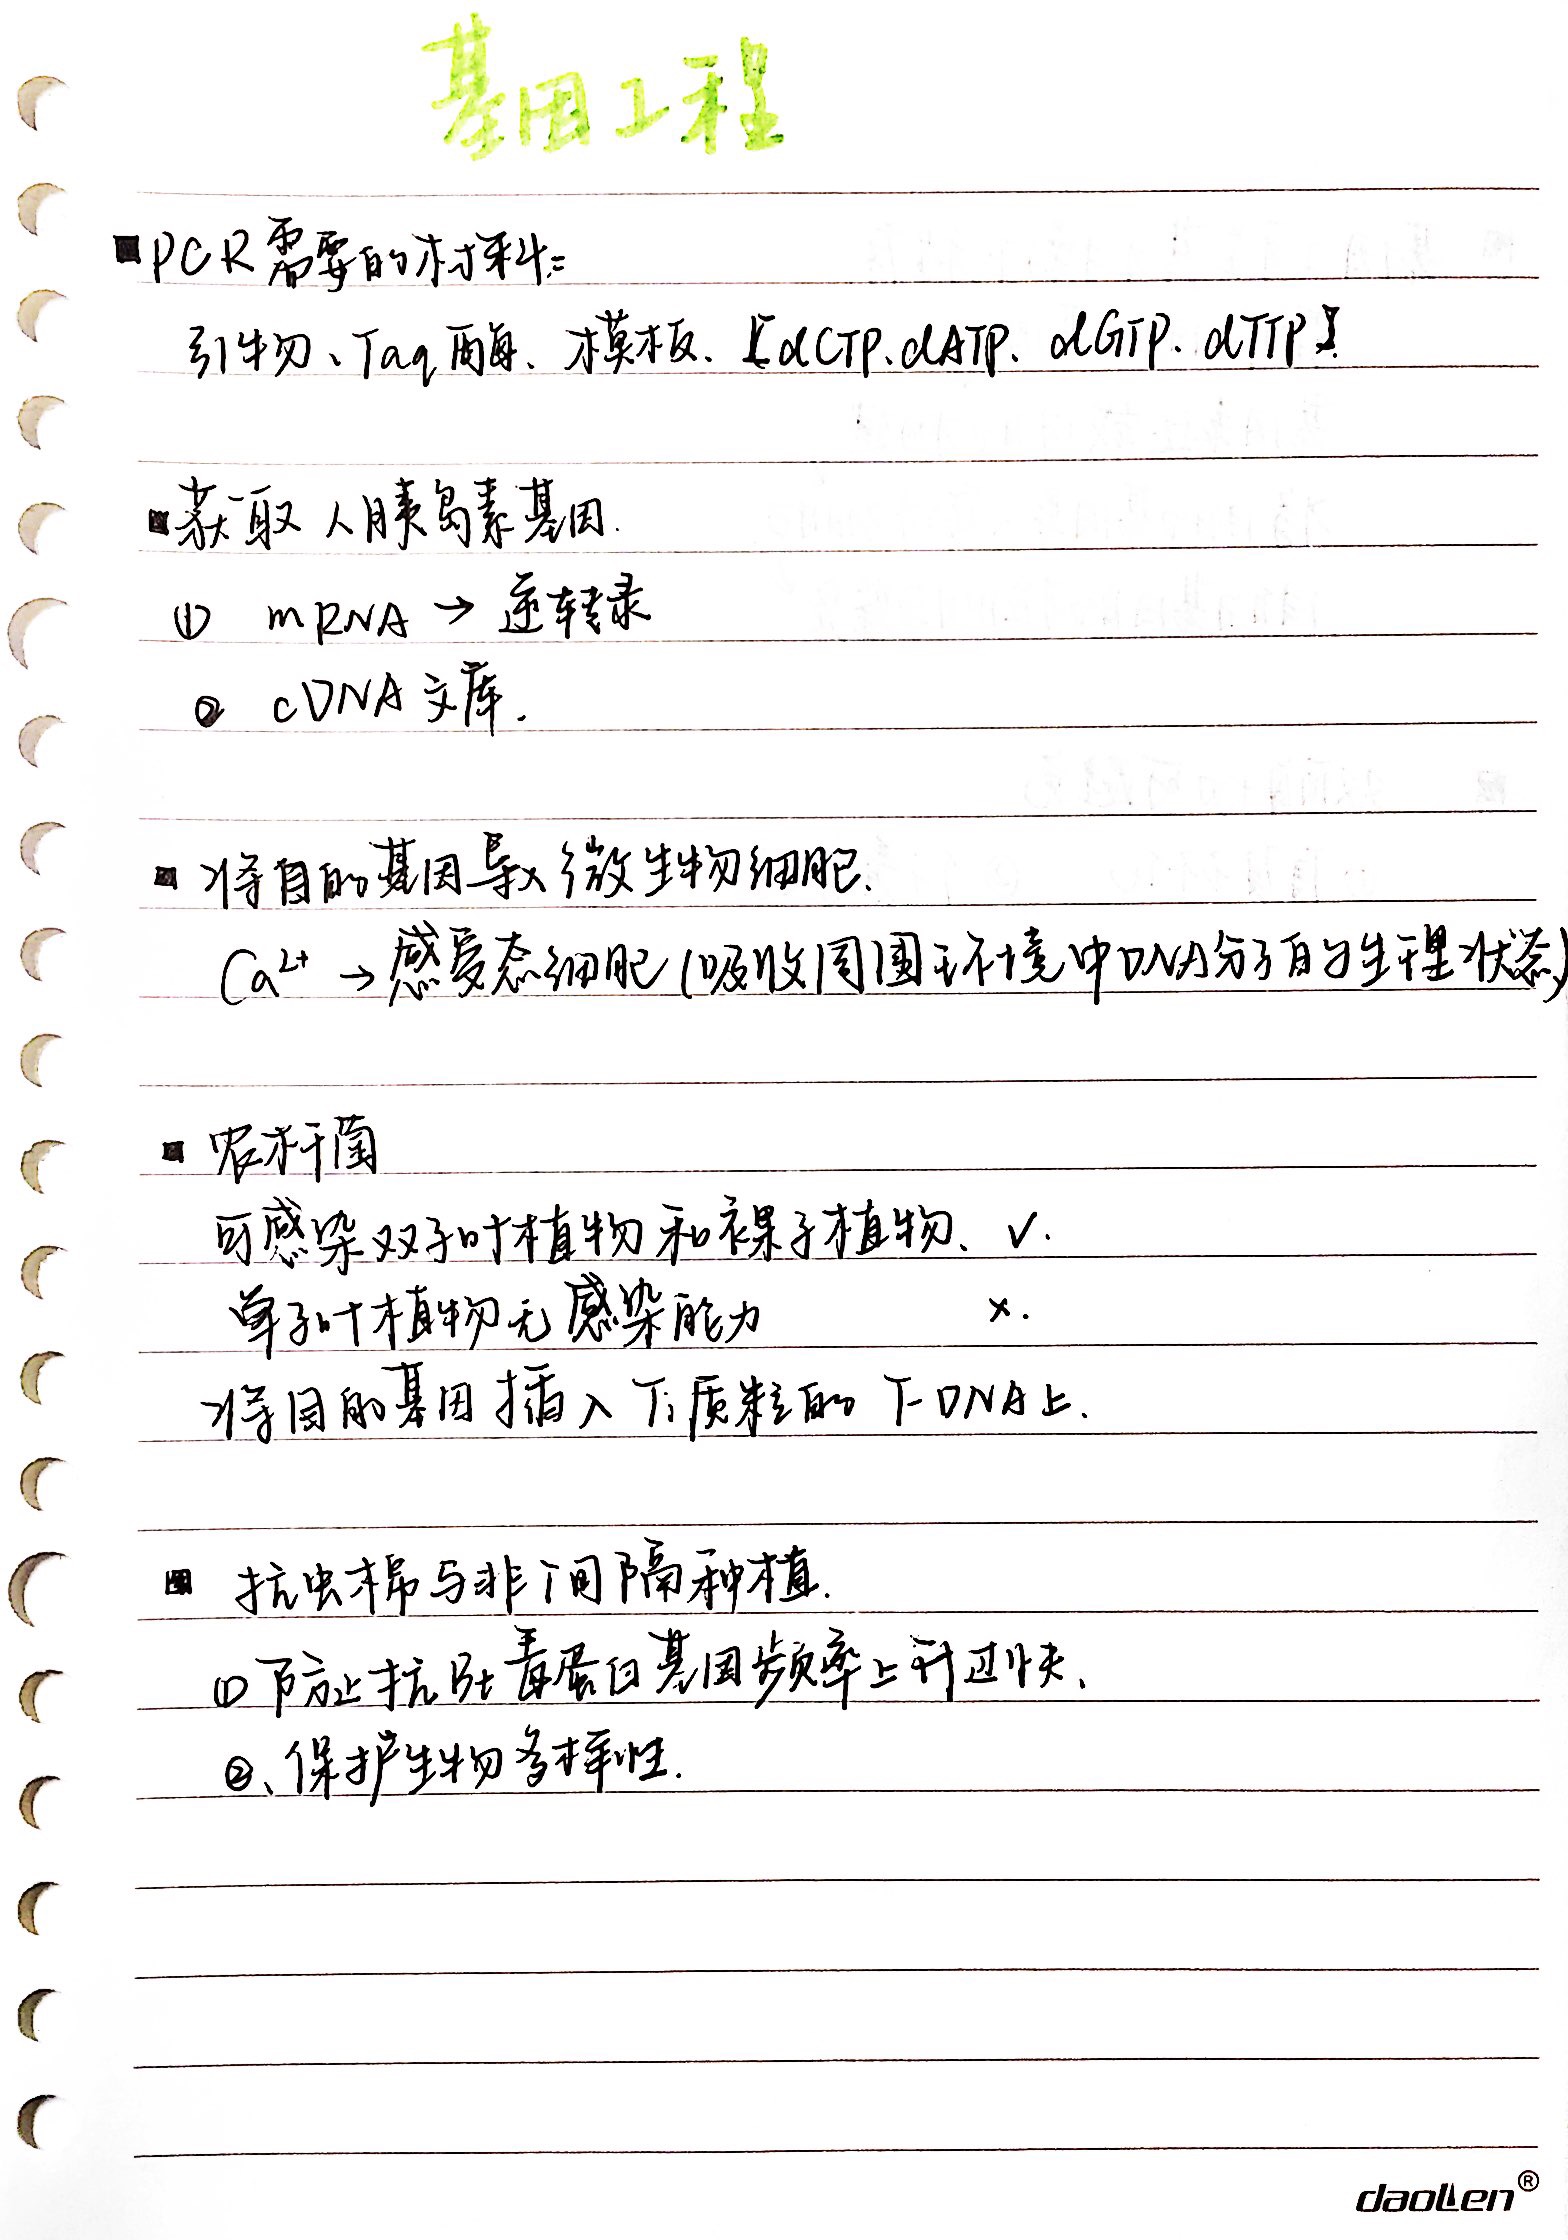 基因工程
PCR需要的材料:
引物、Taq酶、模板、[dCTP、dATP、dGTP、dTTP].
获取人胰岛素基因.
① mRNA → 逆转录
② cDNA文库.
将目的基因导入微生物细胞.
Ca²⁺ → 感受态细胞(吸收周围环境中DNA分子的生理状态)
农杆菌
可感染双子叶植物和裸子植物、√.
单子叶植物无感染能力 ×.
将目的基因插入Ti质粒的T-DNA上.
抗虫棉与非 间隔种植.
①防止抗Bt毒蛋白基因频率上升过快、
②、保护生物多样性.
daollen®